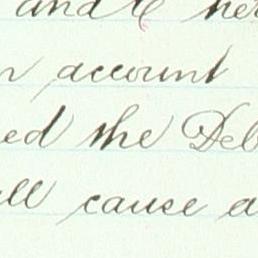 and
account
ed the Deb
ll cause a